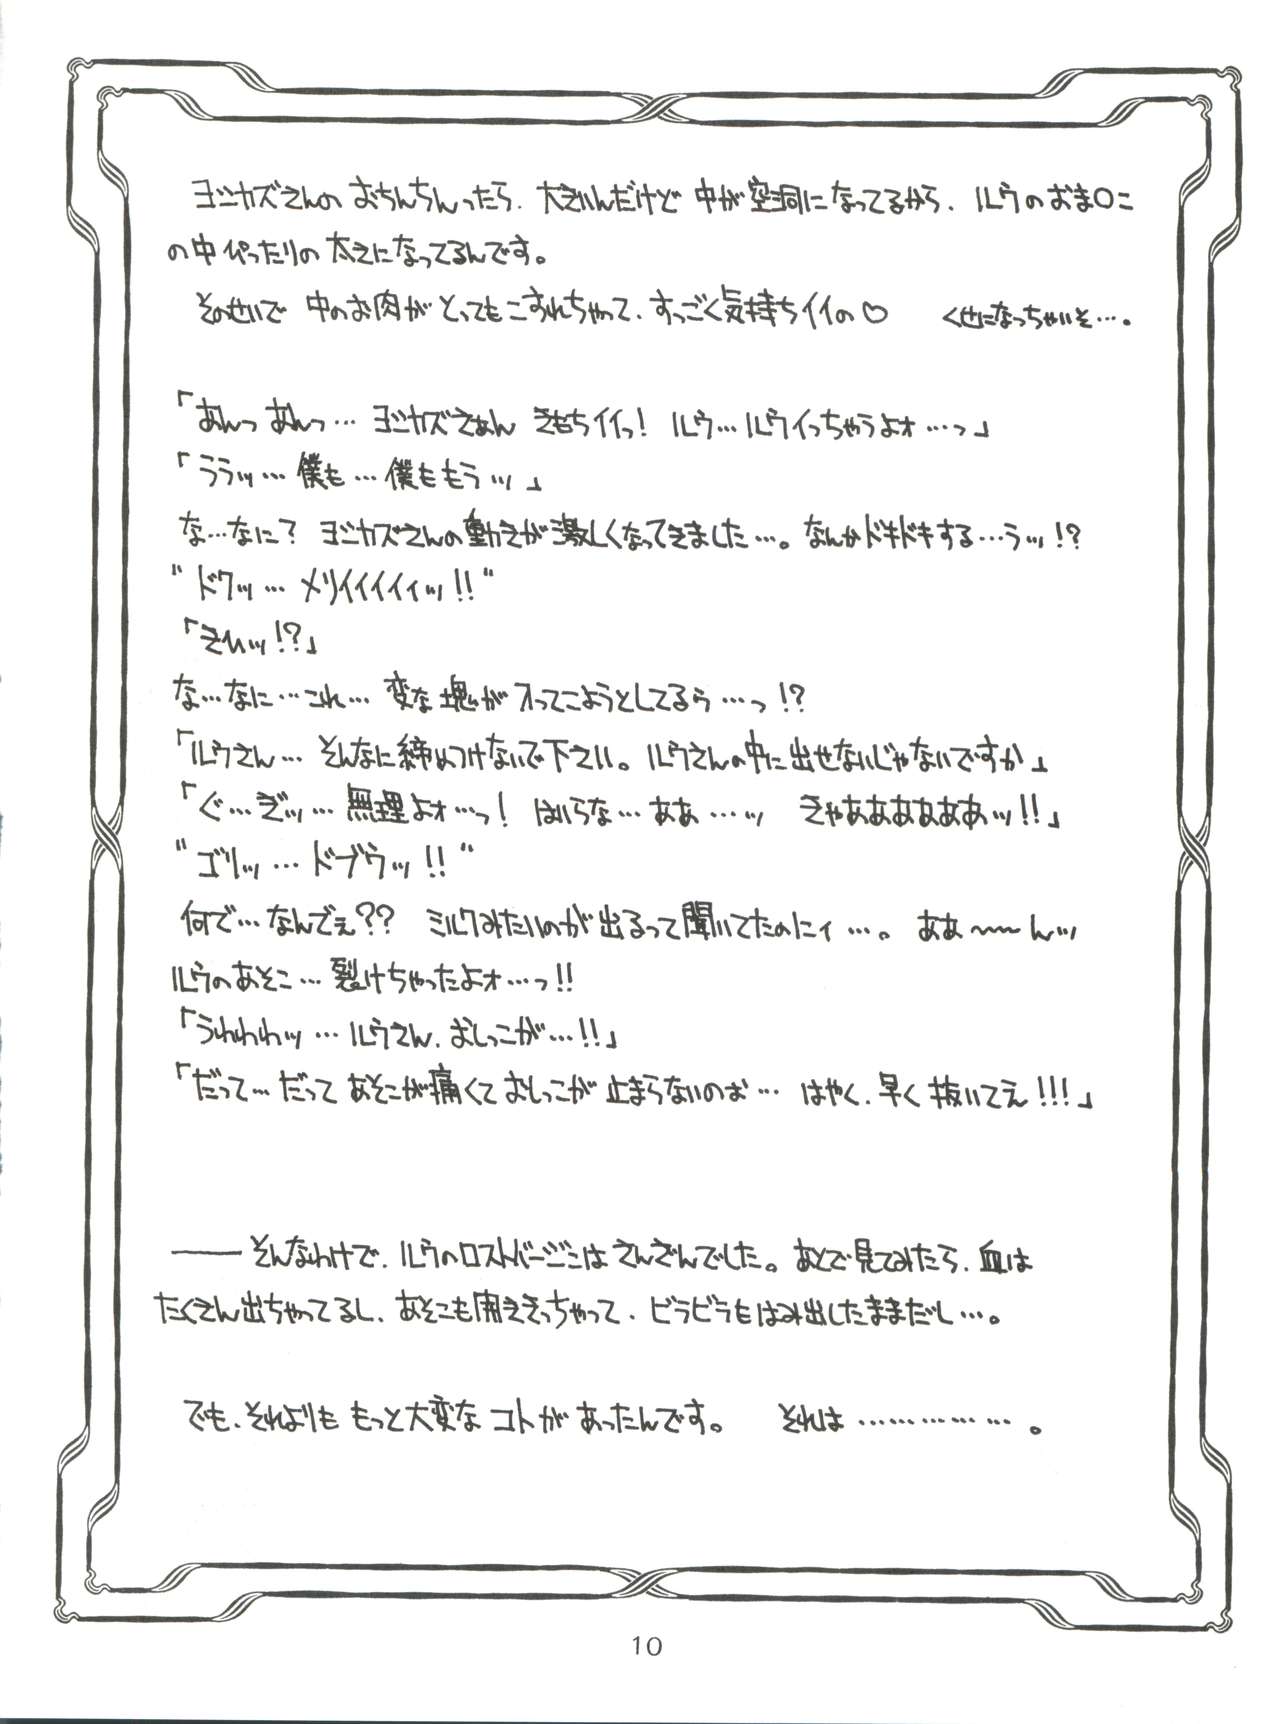 ヨシカズさんの おちんちんったら、大きいんだけど 中が空洞になってるから、ルウのおま○こ
の中ぴったりの 太さになってるんです。
そのせいで 中のお肉がとってもこすれちゃって、すっごく気持ちイイの♡ くせになっちゃいそ…。
「あんっ あんっ… ヨシカズさぁん きもちイイっ! ルウ…ルウイっちゃうよォ…っ」
「ううッ…僕も…僕ももうッ」
な…なに? ヨシカズさんの動きが激しくなってきました…。なんかドキドキする…うッ!?
"ドクッ… メリイイイイィッ!!"
「きひッ!?」
な…なに…これ… 変な塊が入ってこようとしてるぅ…っ!?
「ルウさん… そんなに締めつけないで下さい。ルウさんの中に出せないじゃないですか」
「ぐ…ぎッ…無理よォ…っ! はいらな…ああ…ッ きゃああああああッ!!」
"ゴリッ…ドブウッ!!"
何で…なんでぇ?? ミルクみたいのが出るって聞いてたのにィ…。ああ〜〜んッ
ルウのあそこ…裂けちゃったよォ…っ!!
「うわわわッ…ルウさん、おしっこが…!!」
「だって…だって あそこが痛くて おしっこが 止まらないのぉ… はやく、早く 抜いてえ!!!」
――そんなわけで、ルウのロストバージンはさんざんでした。あとで見てみたら、血は
たくさん出ちゃってるし、あそこも開ききっちゃって、ビラビラもはみ出したままだし…。
でも、それよりも もっと大変な コトがあったんです。 それは……………。
10